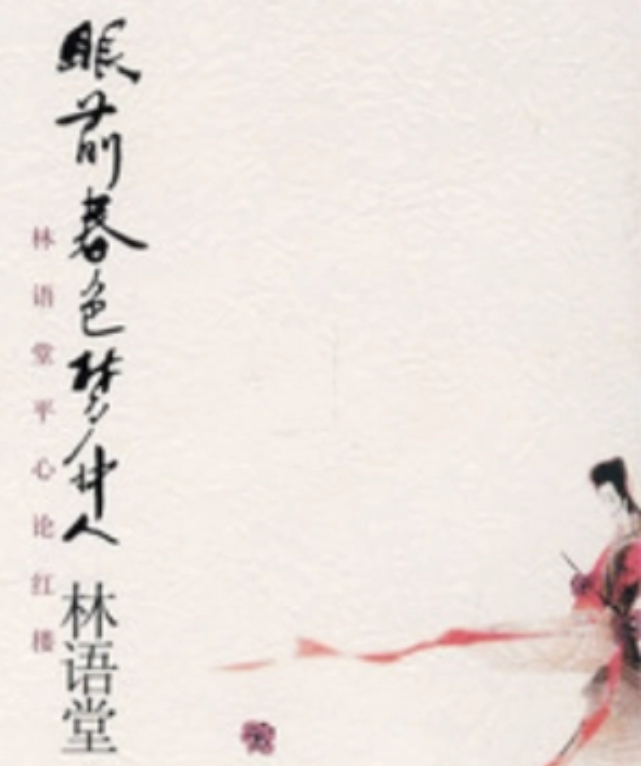 眼前春色梦中人
林语堂
林语堂平心论红楼